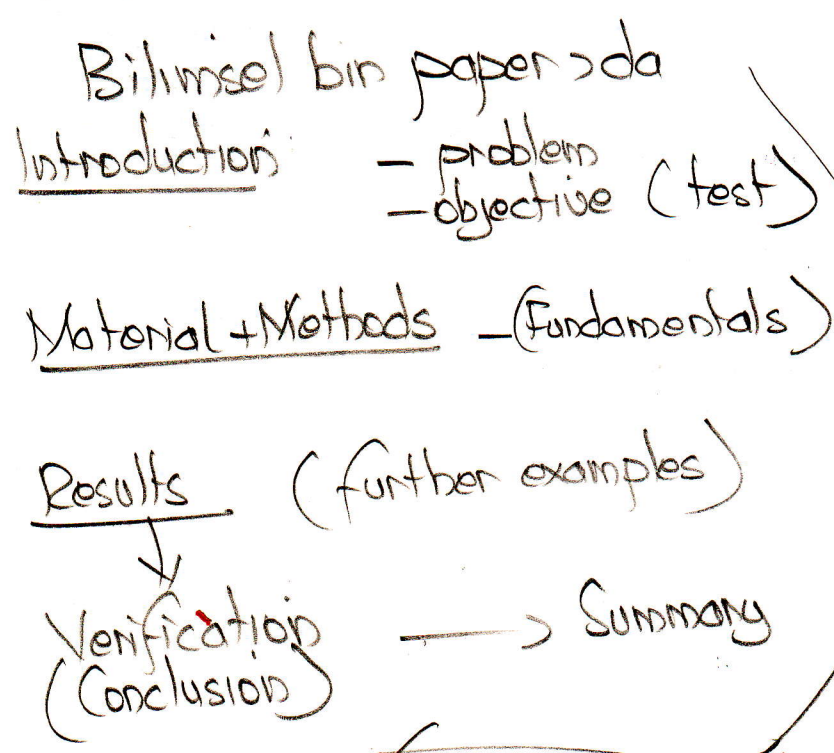 Bilimsel bir paper'da
Introduction - problem
- objective (test)
Material + Methods - (Fundamentals)
Results (further examples)
Verification → Summary
(Conclusion)